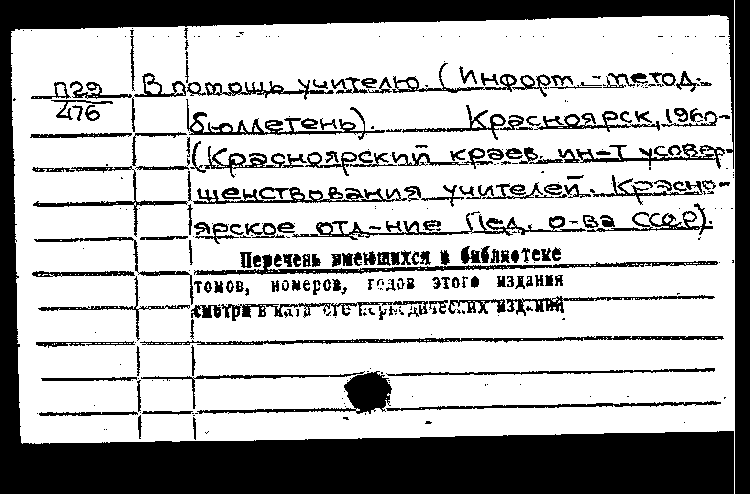 П29
476
В помощь учителю. (Информ.-метод.
бюллетень). Красноярск, 1960-
(Красноярский краев. ин-т усовер-
шенствования учителей. Красно-
ярское отд-ние Пед. о-ва СССР).
Перечень имеющихся в библиотеке
томов, номеров, годов этого издания
смотри в каталоге периодических изданий